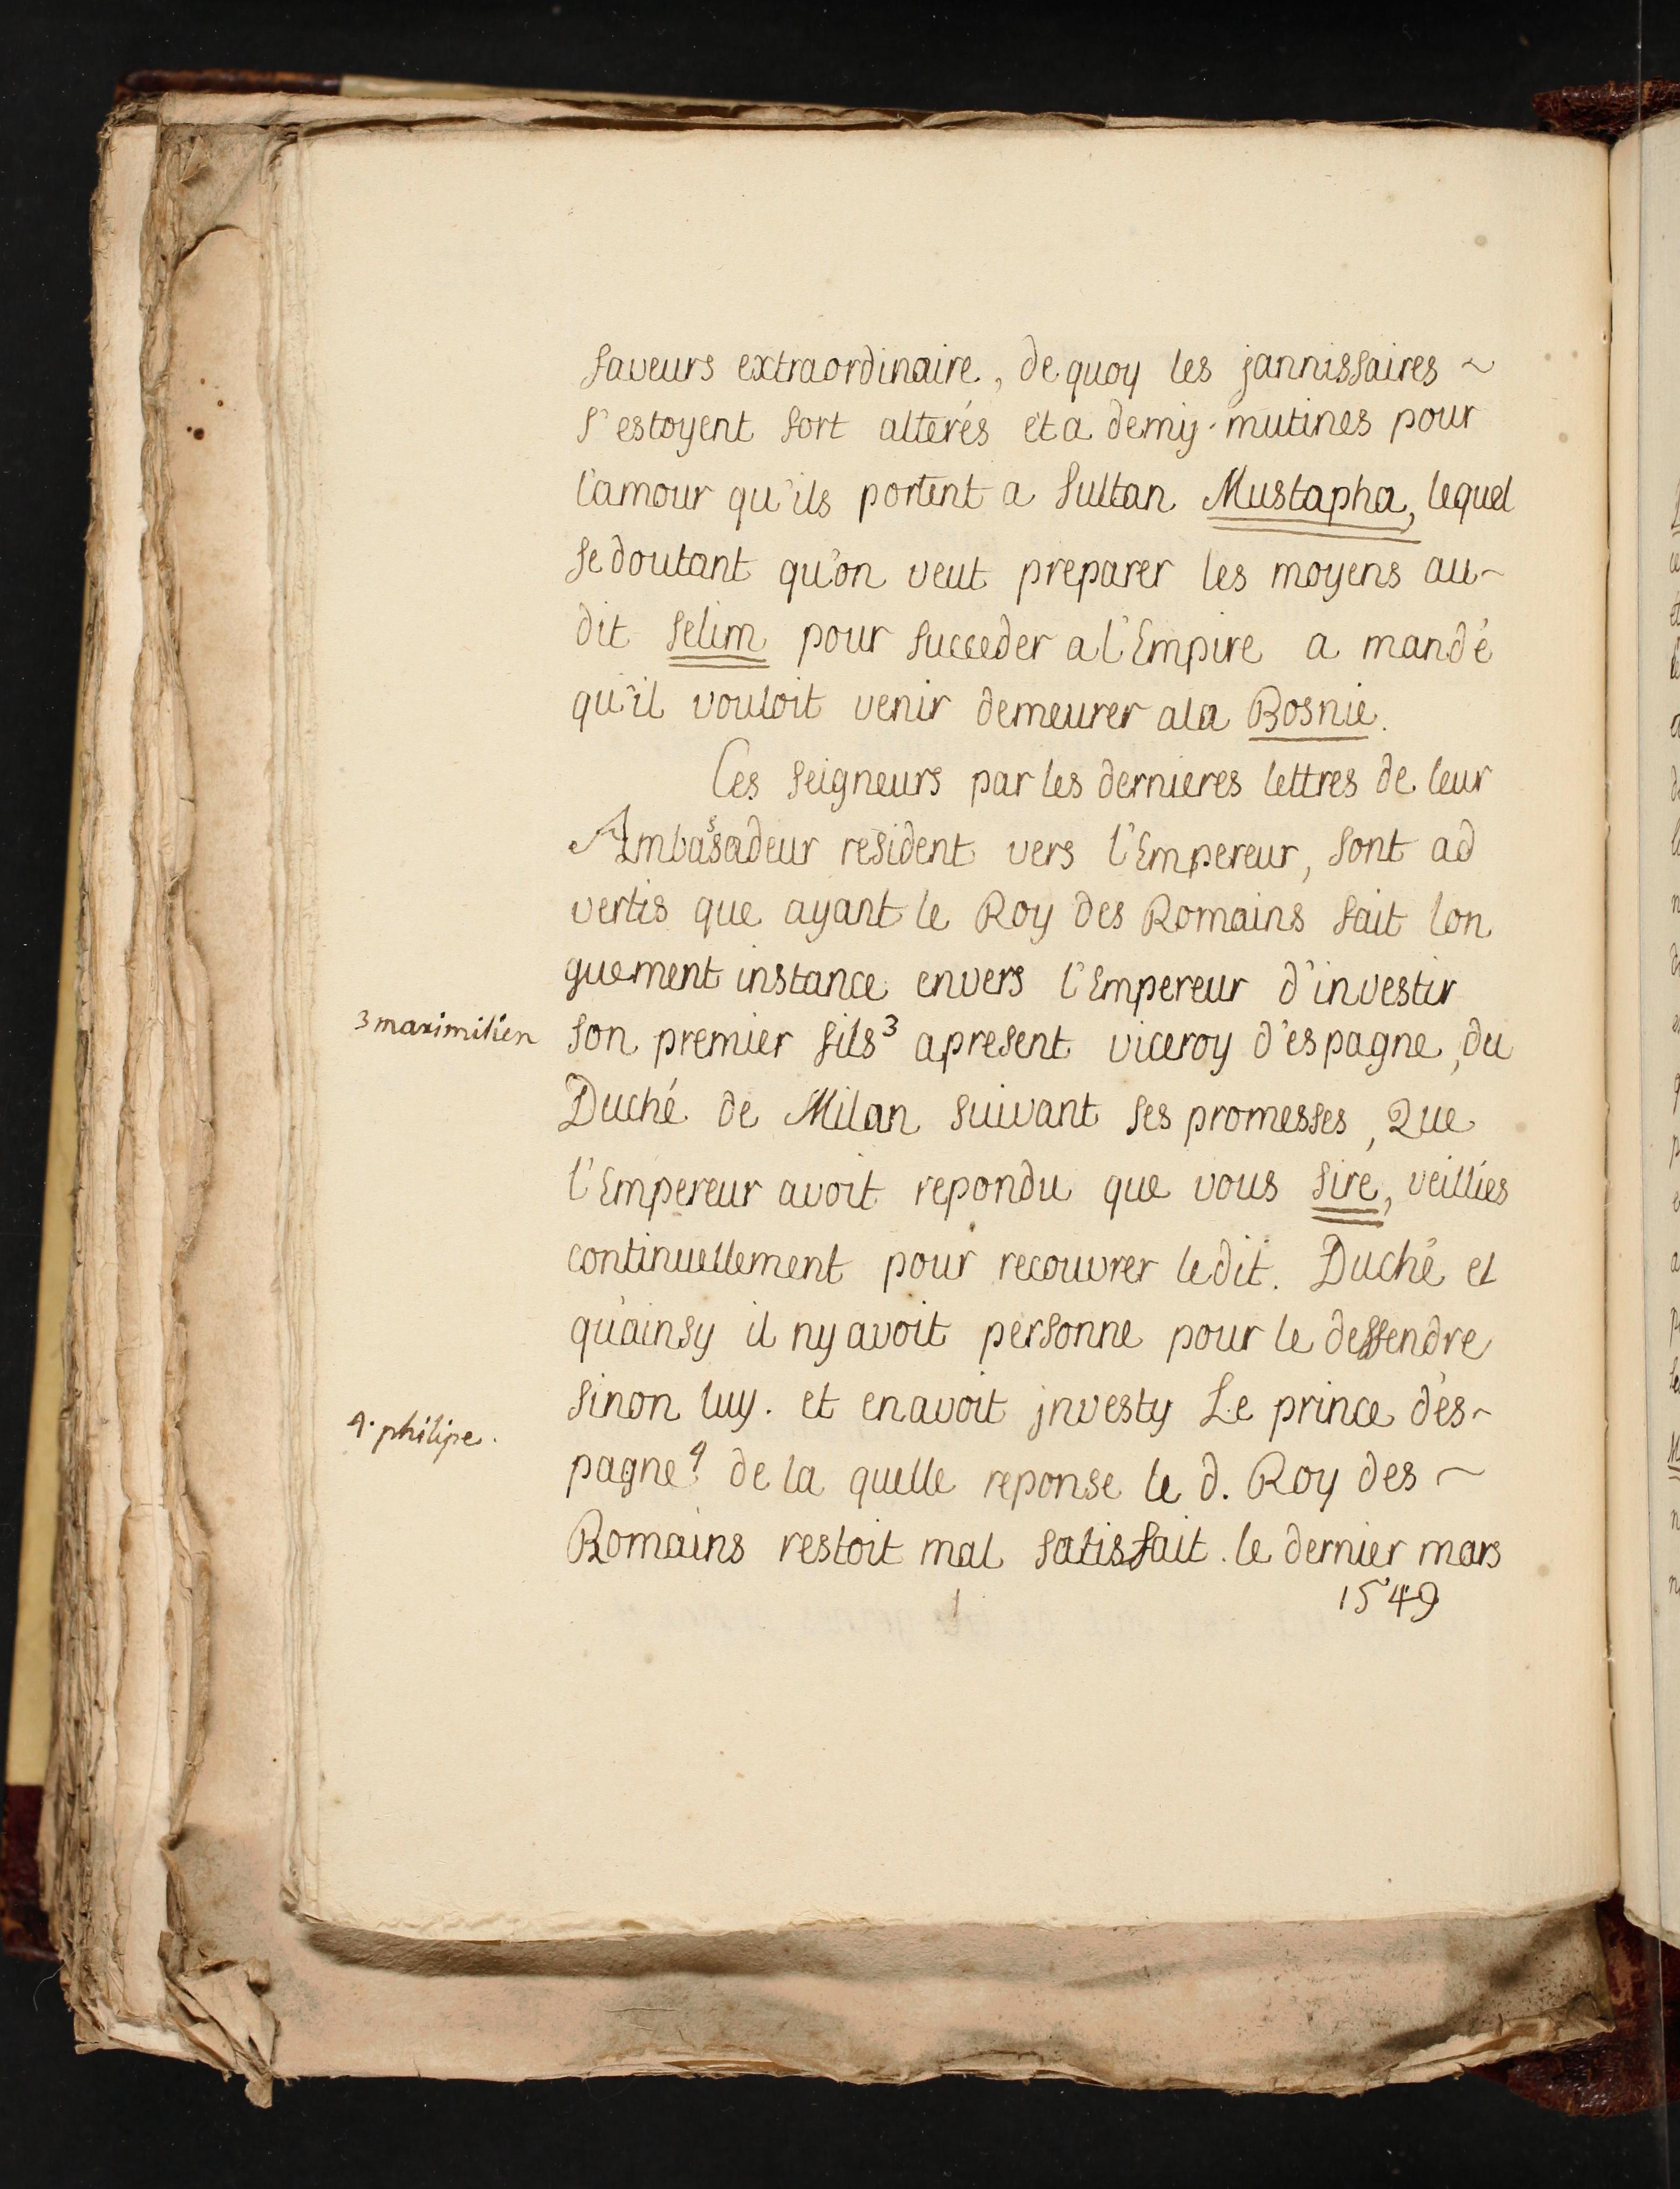 faveurs extraordinaire, de quoy les jannissaires ~
s'estoyent fort alterés et a demy-mutines pour
l'amour qu'ils portent a sultan Mustapha, lequel
se doutant qu'on veut preparer les moyens au~
dit selim pour succeder a l'Empire a mandé
qu'il vouloit venir demeurer a la Bosnie.
Ces seigneurs par les dernieres lettres de leur
Ambassadeur resident vers l'Empereur, sont ad
vertis que ayant le Roy des Romains fait lon
guement instance envers l'Empereur d'investir
3 maximilien
son premier fils³ apresent viceroy d'espagne, du
Duché de Milan suivant ses promesses, Que
l'Empereur avoit repondu que vous sire, veilliés
continuellement pour recouvrer ledit. Duché et
qu'ainsy il ny avoit personne pour le deffendre
sinon luy. et en avoit jnvesty Le prince d'es~
4. philipe.
pagne⁴. de la quelle reponse le d. Roy des ~
Romains restoit mal satisfait. le dernier mars
1549